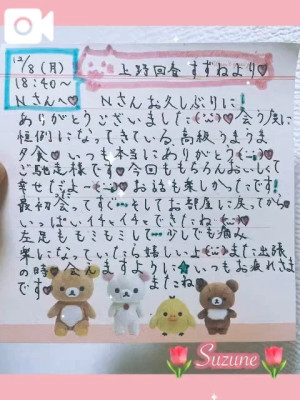 12/8(月)
18:40〜
Nさんへ♡
上野回春 すずねより♡
Nさんお久しぶりに!
ありがとうございました♡会う度に
恒例になってきている、高級うまうま
夕食♡いつも本当にありがとう
ご馳走様です♡今回ももちろんおいしくて
幸せだよー♡お話も楽しかったです!
最初会ってすぐ…そしてお部屋に戻ってから
いっぱいイチャイチャできたね
左足ももミもミして…少しでも痛み
楽になっていたら嬉しいよ♡また出張
の時♡会えますように★いつもお疲れさま
です♡ またね
Suzune